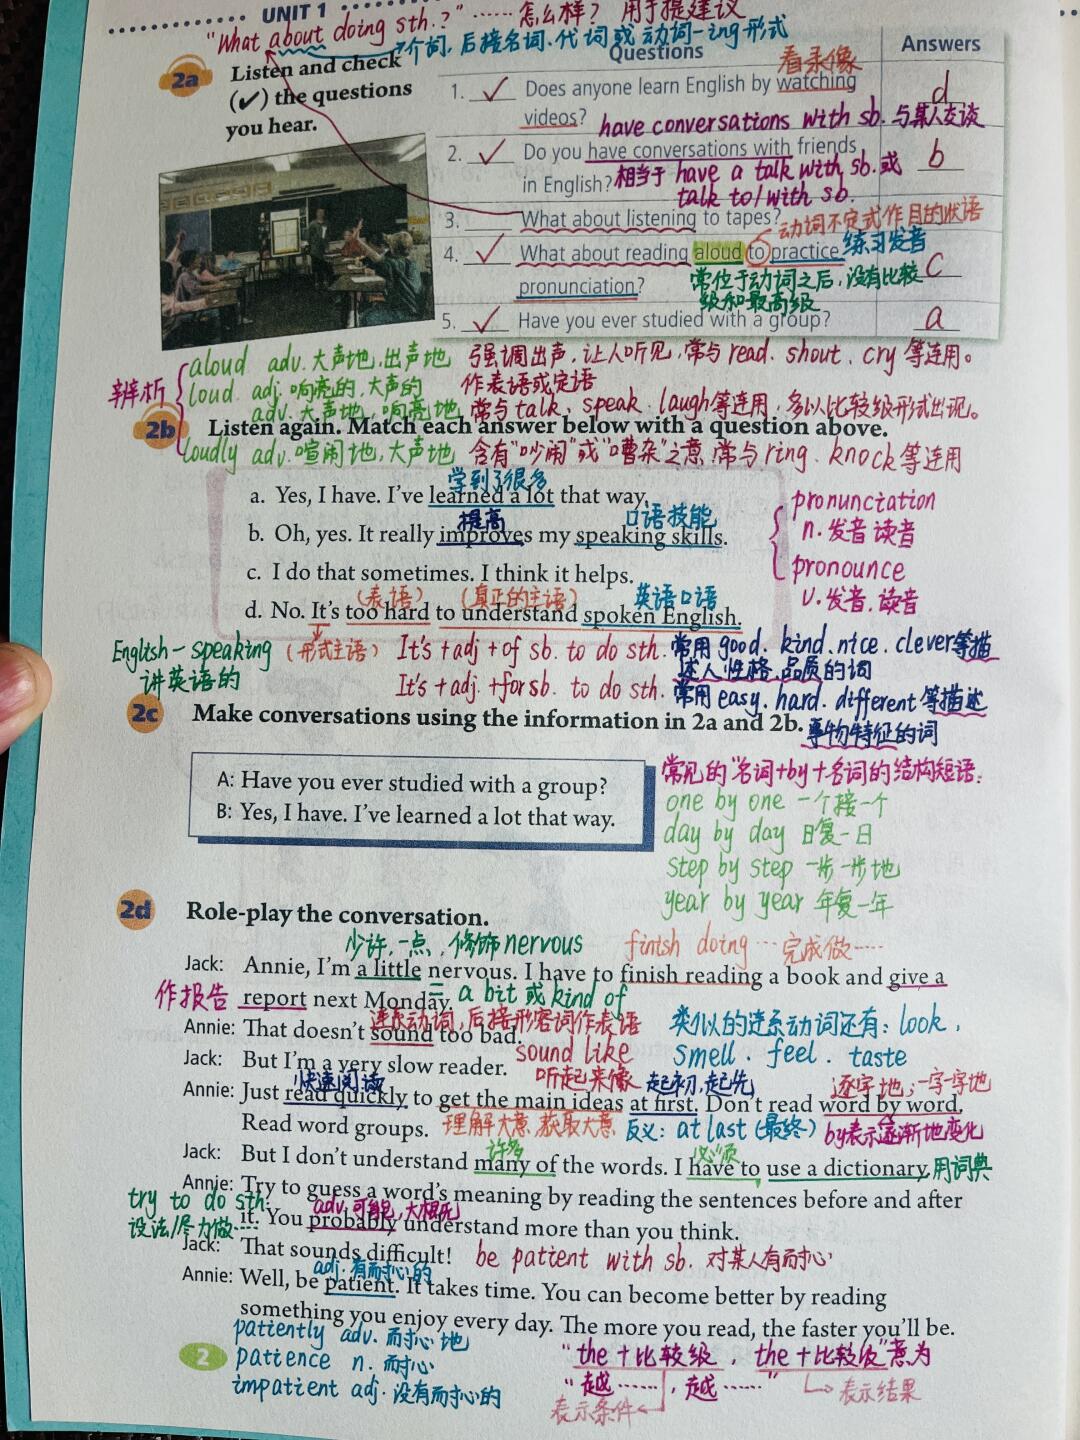 UNIT 1
"What about doing sth.?" ……怎么样？ 用于提建议
介词,后接名词、代词或动词-ing形式
2a Listen and check
(✓) the questions
you hear.
Questions Answers
看录像
1. ✓ Does anyone learn English by watching d
videos? have conversations with sb. 与某人交谈
2. ✓ Do you have conversations with friends b
in English? 相当于 have a talk with sb. 或
talk to/with sb.
3. What about listening to tapes?
动词不定式作目的状语
4. ✓ What about reading aloud to practice 练习发音 c
pronunciation? 常位于动词之后,没有比较
级和最高级
5. ✓ Have you ever studied with a group? a
辨析
aloud adv. 大声地,出声地 强调出声,让人听见,常与 read、shout、cry 等连用。
loud adj. 响亮的,大声的 作表语或定语
adv. 大声地,响亮地 常与talk、speak、laugh等连用,多以比较级形式出现。
2b Listen again. Match each answer below with a question above.
loudly adv. 喧闹地,大声地 含有"吵闹"或"嘈杂"之意,常与ring、knock等连用
学到了很多
a. Yes, I have. I've learned a lot that way.
提高 口语技能
b. Oh, yes. It really improves my speaking skills.
pronunciation
n. 发音 读音
pronounce
v. 发音,读音
c. I do that sometimes. I think it helps.
(表语) (真正的主语) 英语口语
d. No. It's too hard to understand spoken English.
English-speaking
讲英语的
(形式主语)
It's + adj + of sb. to do sth. 常用 good、kind、nice、clever等描
述人性格、品质的词
It's + adj. + for sb. to do sth. 常用 easy、hard、different 等描述
事物特征的词
2c Make conversations using the information in 2a and 2b.
A: Have you ever studied with a group?
B: Yes, I have. I've learned a lot that way.
常见的"名词+by+名词的结构短语:
one by one 一个接一个
day by day 日复一日
step by step 一步一步地
year by year 年复一年
2d Role-play the conversation.
少许,一点,修饰nervous finish doing … 完成做……
Jack: Annie, I'm a little nervous. I have to finish reading a book and give a
作报告 report next Monday. = a bit 或 kind of
连系动词,后接形容词作表语
Annie: That doesn't sound too bad.
sound like
听起来像
类似的连系动词还有: look、
smell、feel、taste
Jack: But I'm a very slow reader.
快速阅读 起初,起先 逐字地;一字一字地
Annie: Just read quickly to get the main ideas at first. Don't read word by word.
Read word groups. 理解大意,获取大意 反义: at last (最终) by表示逐渐地变化
许多 必须
Jack: But I don't understand many of the words. I have to use a dictionary. 用词典
Annie: Try to guess a word's meaning by reading the sentences before and after
try to do sth.
设法/尽力做……
adv. 可能,大概
it. You probably understand more than you think.
Jack: That sounds difficult! be patient with sb. 对某人有耐心
adj. 有耐心的
Annie: Well, be patient. It takes time. You can become better by reading
something you enjoy every day. The more you read, the faster you'll be.
patiently adv. 耐心地
patience n. 耐心
impatient adj. 没有耐心的
"the + 比较级, the + 比较级"意为
"越……,越……"
表示条件 表示结果
2